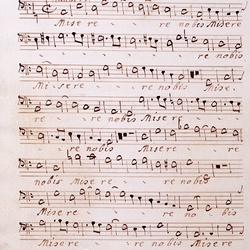 Misere re nobis Misere
re nobis
Misere re nobis Mise.
re re nobis Misere
re nobis Misere re
nobis Misere re nobis
Misere re no bis
Misere re nobis